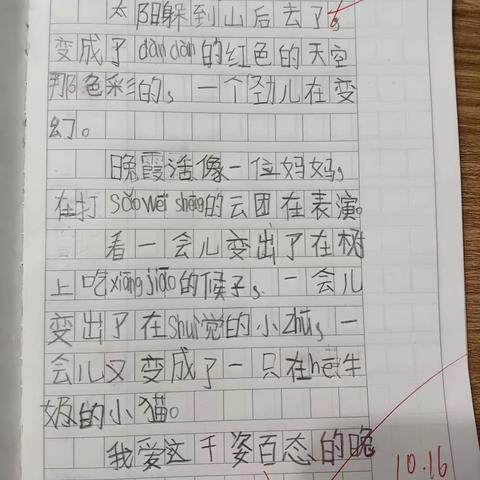 太阳躲到山后去了，
变成了dàn dàn的红色的天空
那色彩的，一个劲儿在变
幻。
晚霞活像一位妈妈，
在打sǎo wèi shēng的云团在表演。
看一会儿变出了在树
上吃xiāng jiāo的候子，一会儿
变出了在shuì觉的小zhū，一
会儿又变成了一只在hē牛
奶的小猫。
我爱这千姿百态的晚
10.16